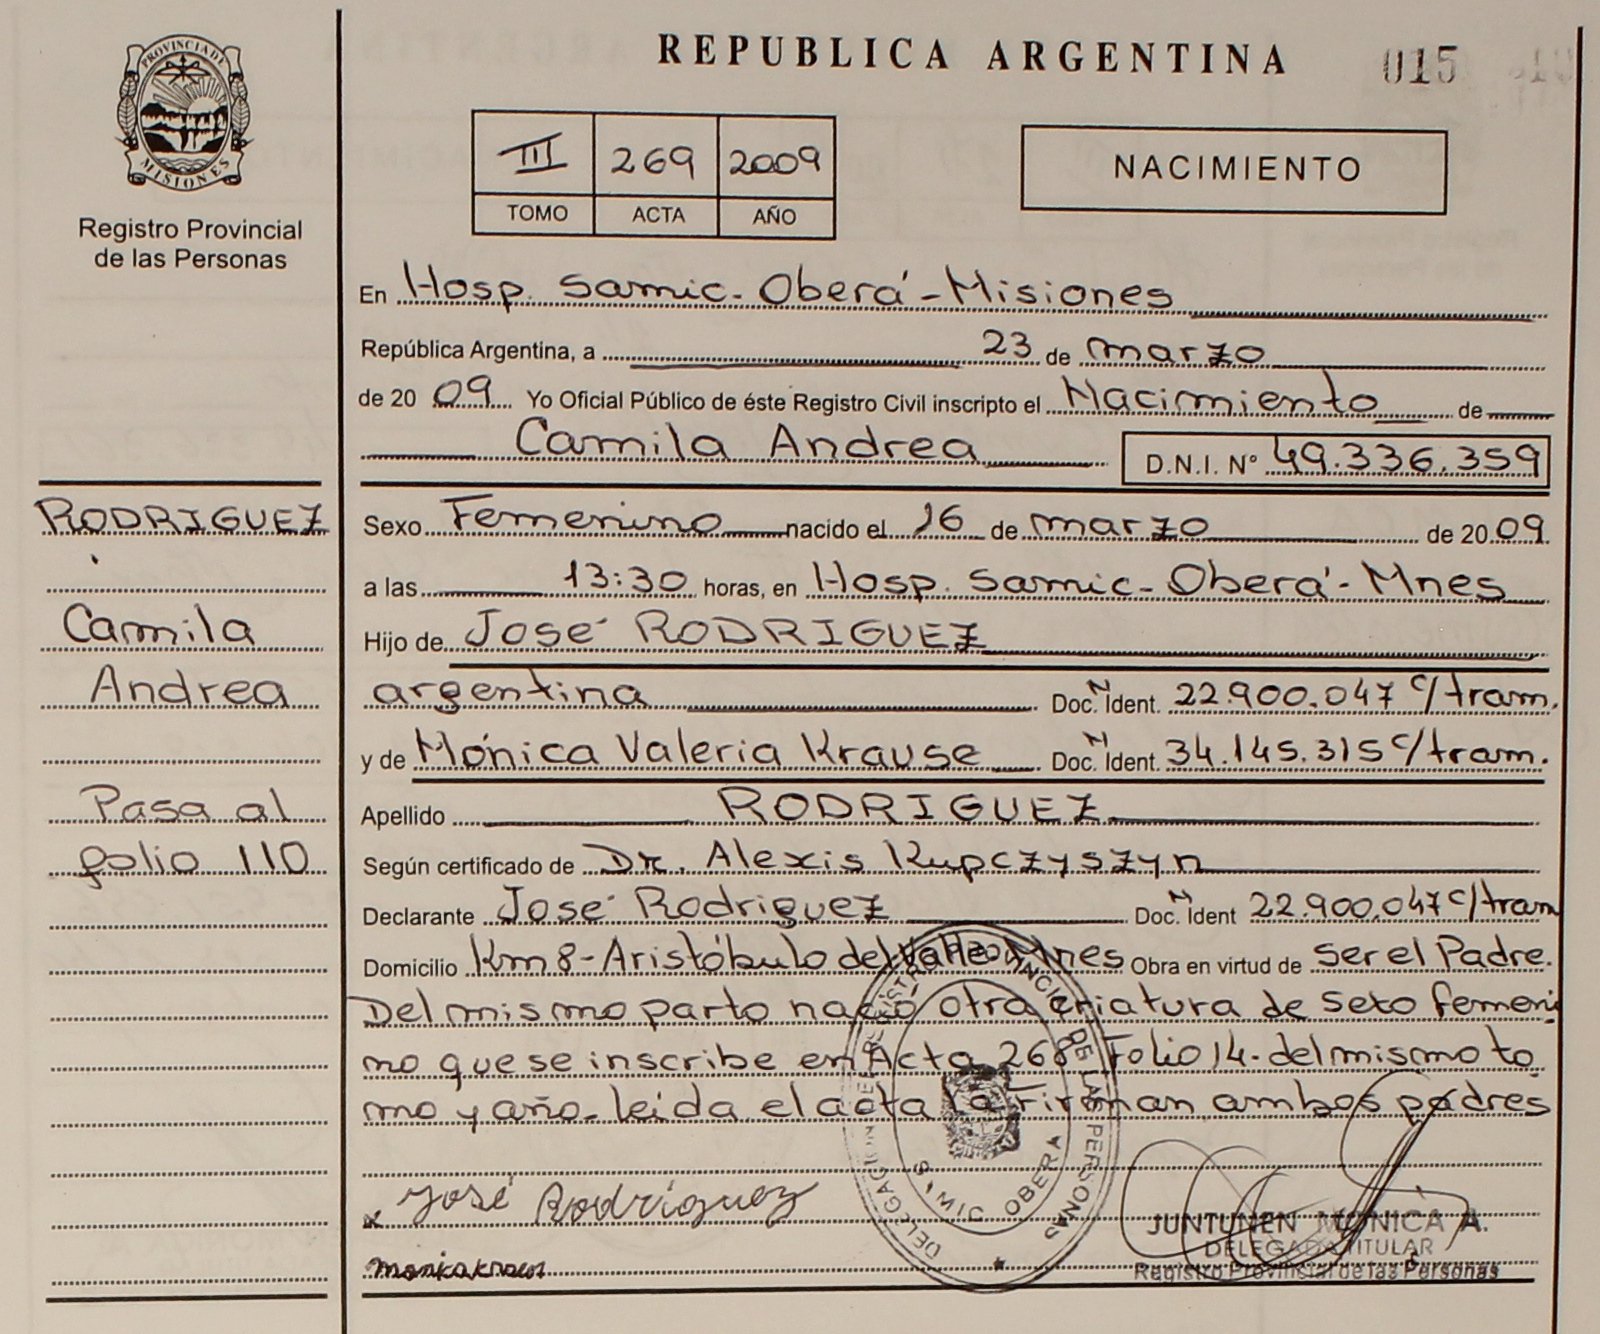 PROVINCIA DE
MISIONES
Registro Provincial
de las Personas
REPUBLICA ARGENTINA
015
III 269 2009
TOMO ACTA AÑO
NACIMIENTO
En Hosp. Samic - Oberá - Misiones
República Argentina, a 23 de marzo
de 20 09 Yo Oficial Público de éste Registro Civil inscripto el Nacimiento de
Camila Andrea D.N.I. Nº 49.336.359
RODRIGUEZ
Camila
Andrea
Pasa al
folio 110
Sexo Femenino nacido el 16 de marzo de 20 09
a las 13:30 horas, en Hosp. Samic - Oberá - Mnes
Hijo de José RODRIGUEZ
argentina Doc. N Ident. 22.900.047 c/tram.
y de Mónica Valeria Krause Doc. N Ident. 34.145.315 c/tram.
Apellido RODRIGUEZ
Según certificado de Dr. Alexis Kupczyszyn
Declarante José Rodriguez Doc. N Ident 22.900.047 c/tram
Domicilio Km 8 - Aristóbulo del Valle - Mnes Obra en virtud de ser el Padre.
Del mismo parto nació otra criatura de sexo femeni
no que se inscribe en Acta 268 Folio 14 - del mismo to
mo y año - leida el acta la Firman ambos padres
x José Rodríguez
monica
DELEGACION DEL REGISTRO PROVINCIAL DE LAS PERSONAS
SAMIC OBERA
JUNTUNEN MONICA A.
DELEGADA TITULAR
Registro Provincial de las Personas